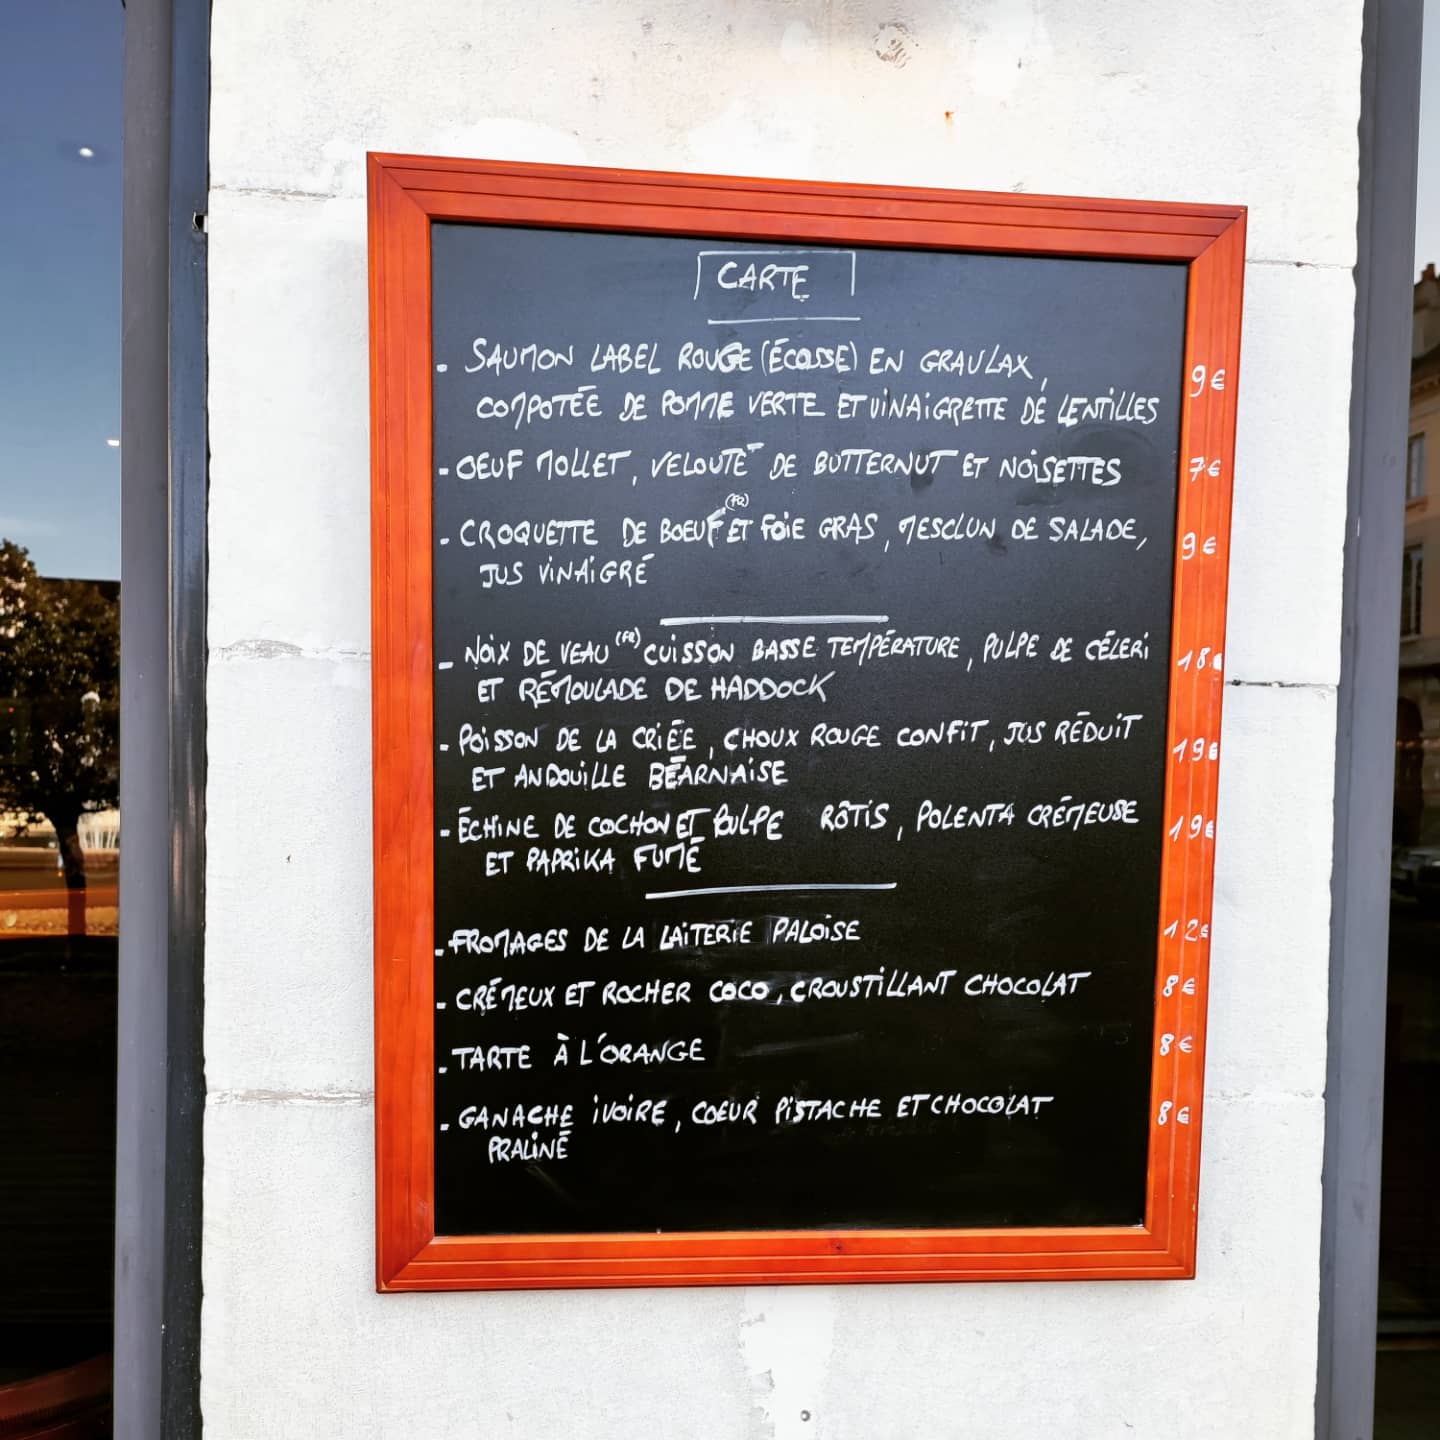 CARTE
- SAUMON LABEL ROUGE (ÉCOSSE) EN GRAVLAX, 9€
COMPOTÉE DE POMME VERTE ET VINAIGRETTE DE LENTILLES
- OEUF MOLLET, VELOUTÉ DE BUTTERNUT ET NOISETTES 7€
- CROQUETTE DE BOEUF (FR) ET FOIE GRAS, MESCLUN DE SALADE, 9€
JUS VINAIGRÉ
- NOIX DE VEAU (FR) CUISSON BASSE TEMPÉRATURE, PULPE DE CÉLERI 18€
ET RÉMOULADE DE HADDOCK
- POISSON DE LA CRIÉE, CHOUX ROUGE CONFIT, JUS RÉDUIT 19€
ET ANDOUILLE BÉARNAISE
- ÉCHINE DE COCHON ET PULPE RÔTIS, POLENTA CRÉMEUSE 19€
ET PAPRIKA FUMÉ
- FROMAGES DE LA LAITERIE PALOISE 12€
- CRÉMEUX ET ROCHER COCO, CROUSTILLANT CHOCOLAT 8€
- TARTE À L'ORANGE 8€
- GANACHE IVOIRE, COEUR PISTACHE ET CHOCOLAT 8€
PRALINÉ